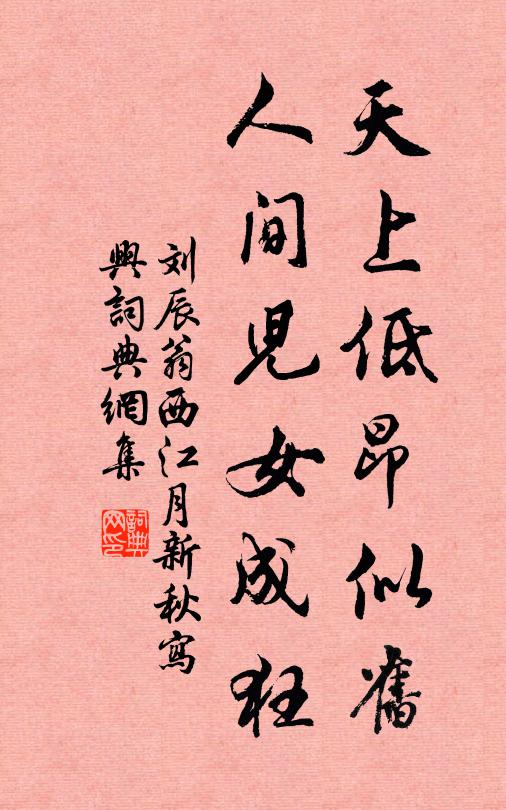 天上低昂似舊
人間児女成狂
刘辰翁西江月新秋寫
興詞典網集
詞典
网印